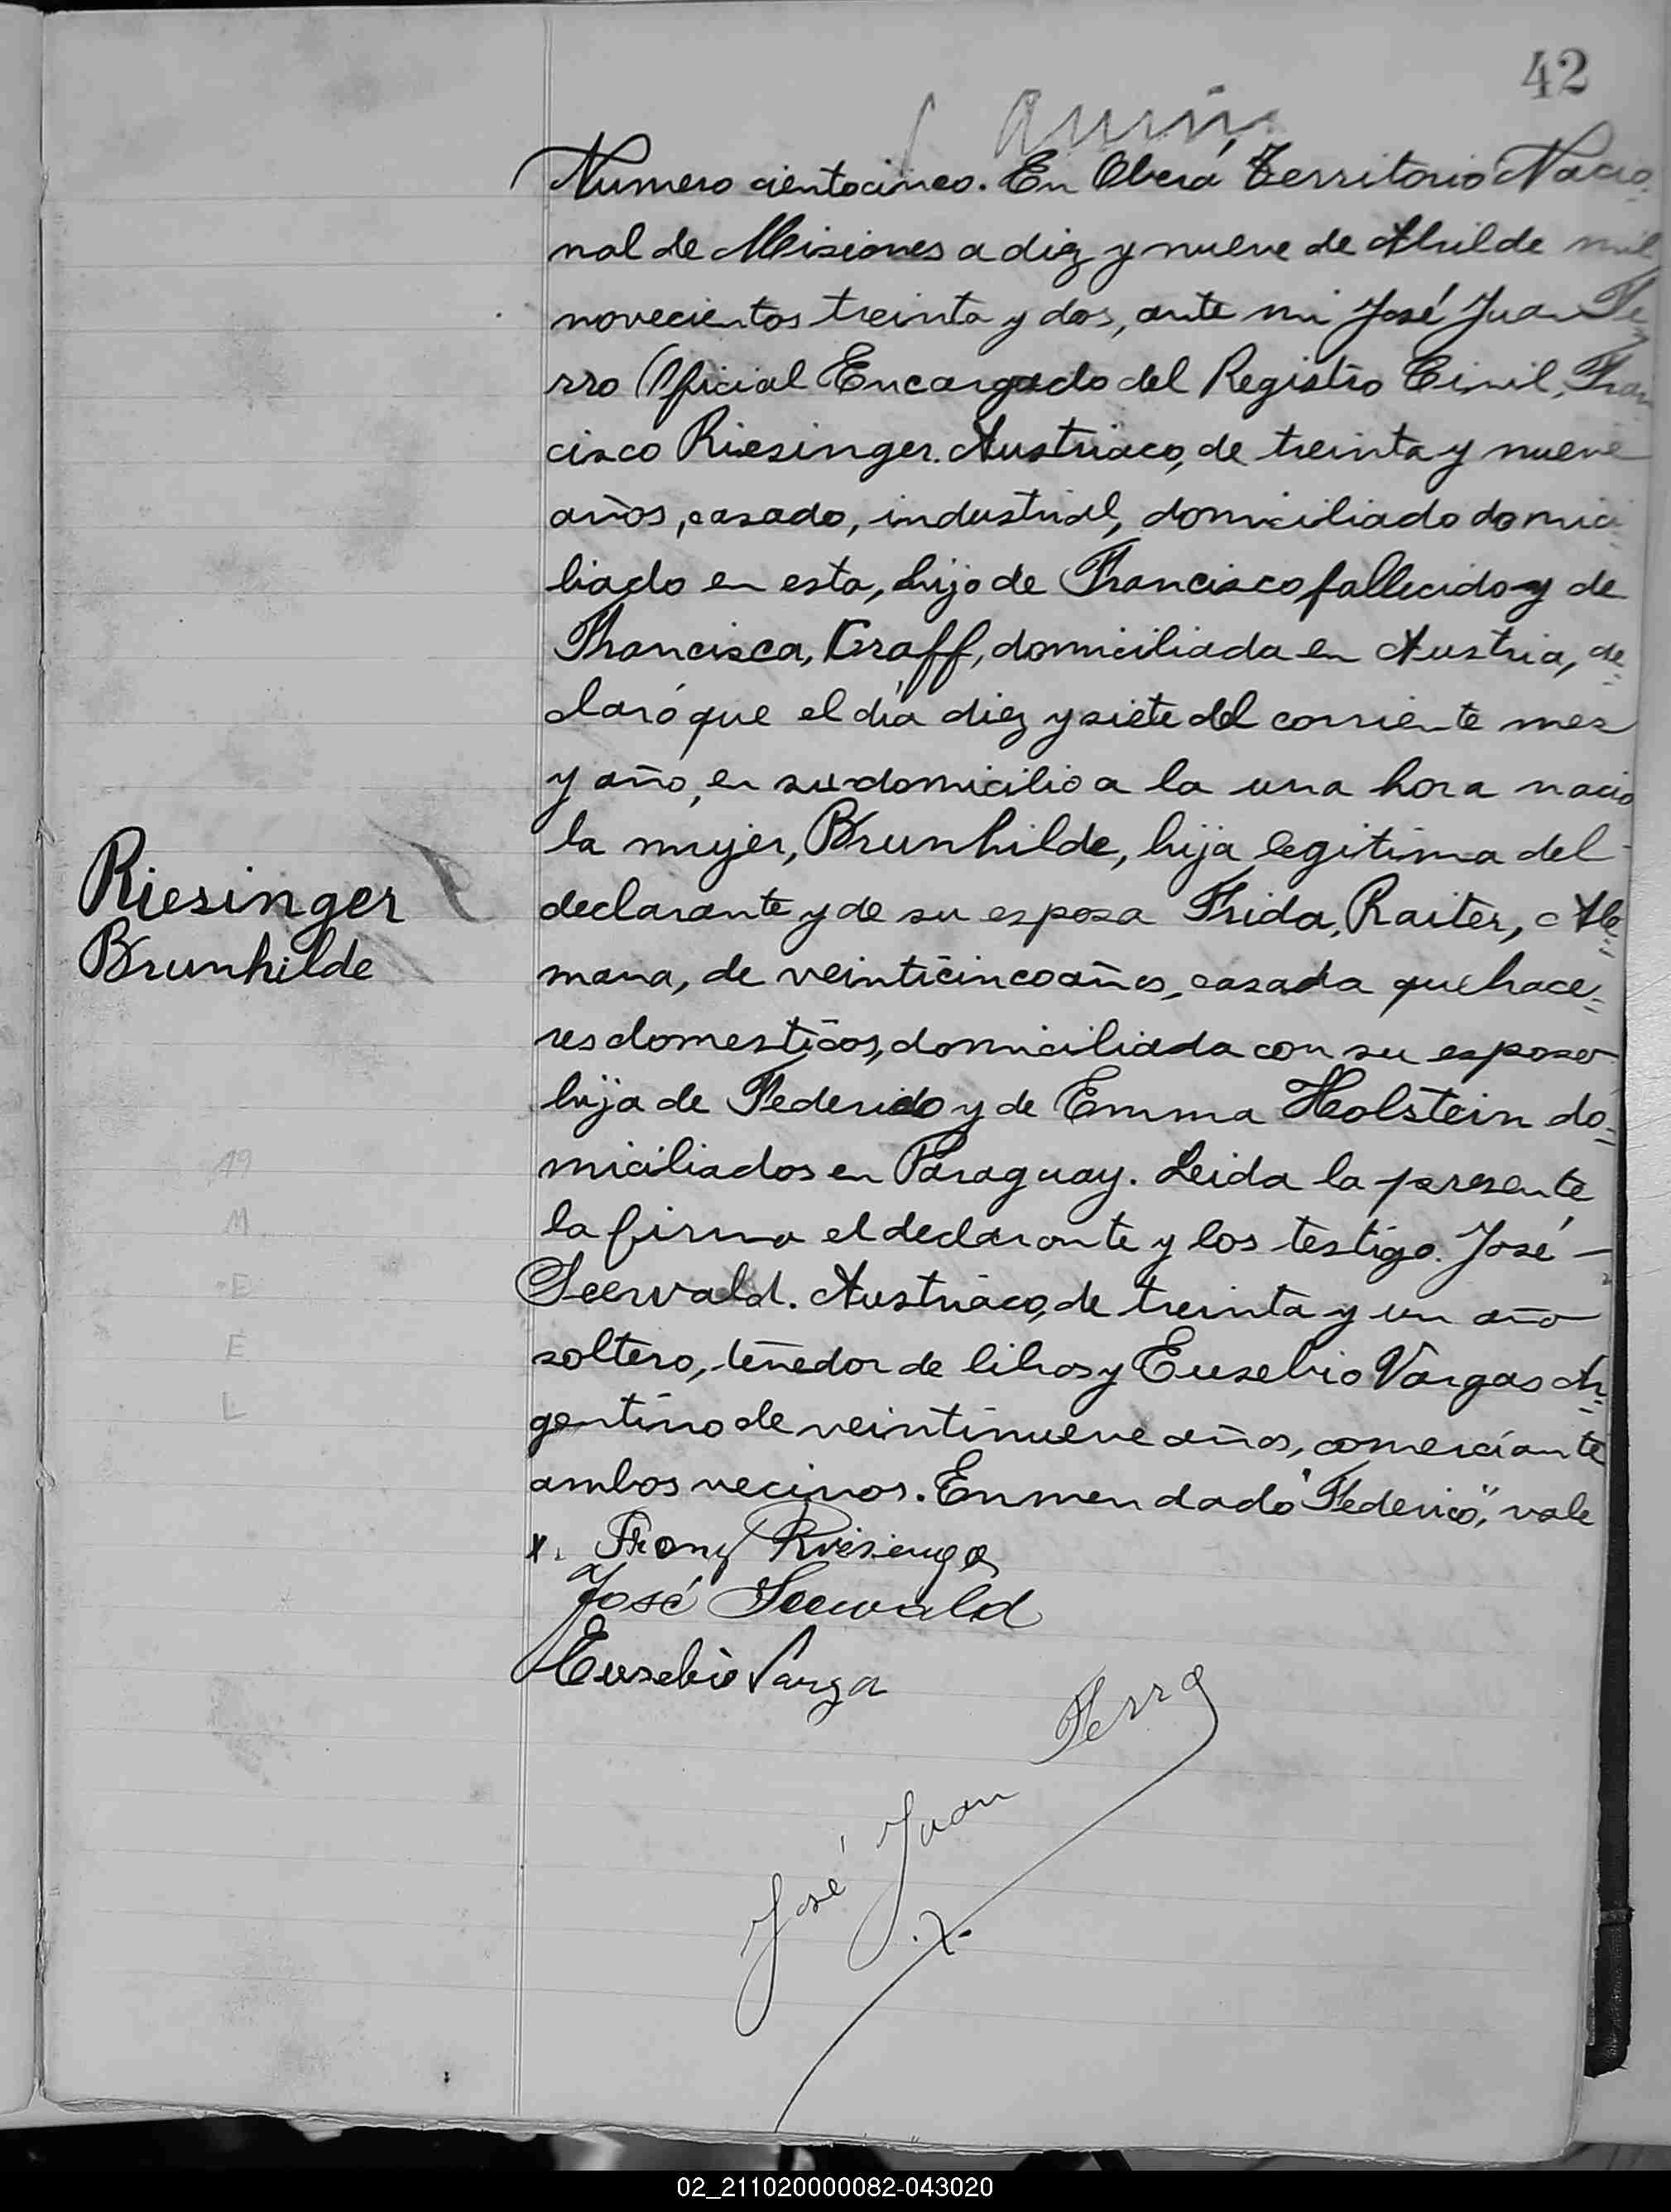 42
Numero cientocinco. En Oberá, Territorio Nacio
nal de Misiones a diez y nueve de Abril de mil
novecientos treinta y dos, ante mi José Juan Fe
rro Oficial Encargado del Registro Civil, Fran
cisco Riesinger. Austriaco, de treinta y nueve
años, casado, industrial, domiciliado domici
liado en esta, hijo de Francisco fallecido y de
Francisca, Graff, domiciliada en Austria, de=
claró que el día diez y siete del corriente mes
y año, en su domicilio a la una hora nacio
la mujer, Brunhilde, hija legitima del
Riesinger
Brunhilde
declarante y de su esposa Frida, Raiter, Ale=
mana, de veinticinco años, casada quehace=
res domesticos, domiciliada con su esposo
hija de Federico y de Emma Holstein do=
miciliados en Paraguay. Leida la presente
la firma el declarante y los testigo. José
Seewald. Austriaco, de treinta y un año
soltero, tenedor de libros y Eusebio Vargas Ar=
gentino de veintinueve años, comerciante
ambos vecinos. Enmendado "Federico", vale
19
M
E
E
L
x. Franz Riesinger
José Seewald
Eusebio Varga
José Juan Ferro
02_211020000082-043020